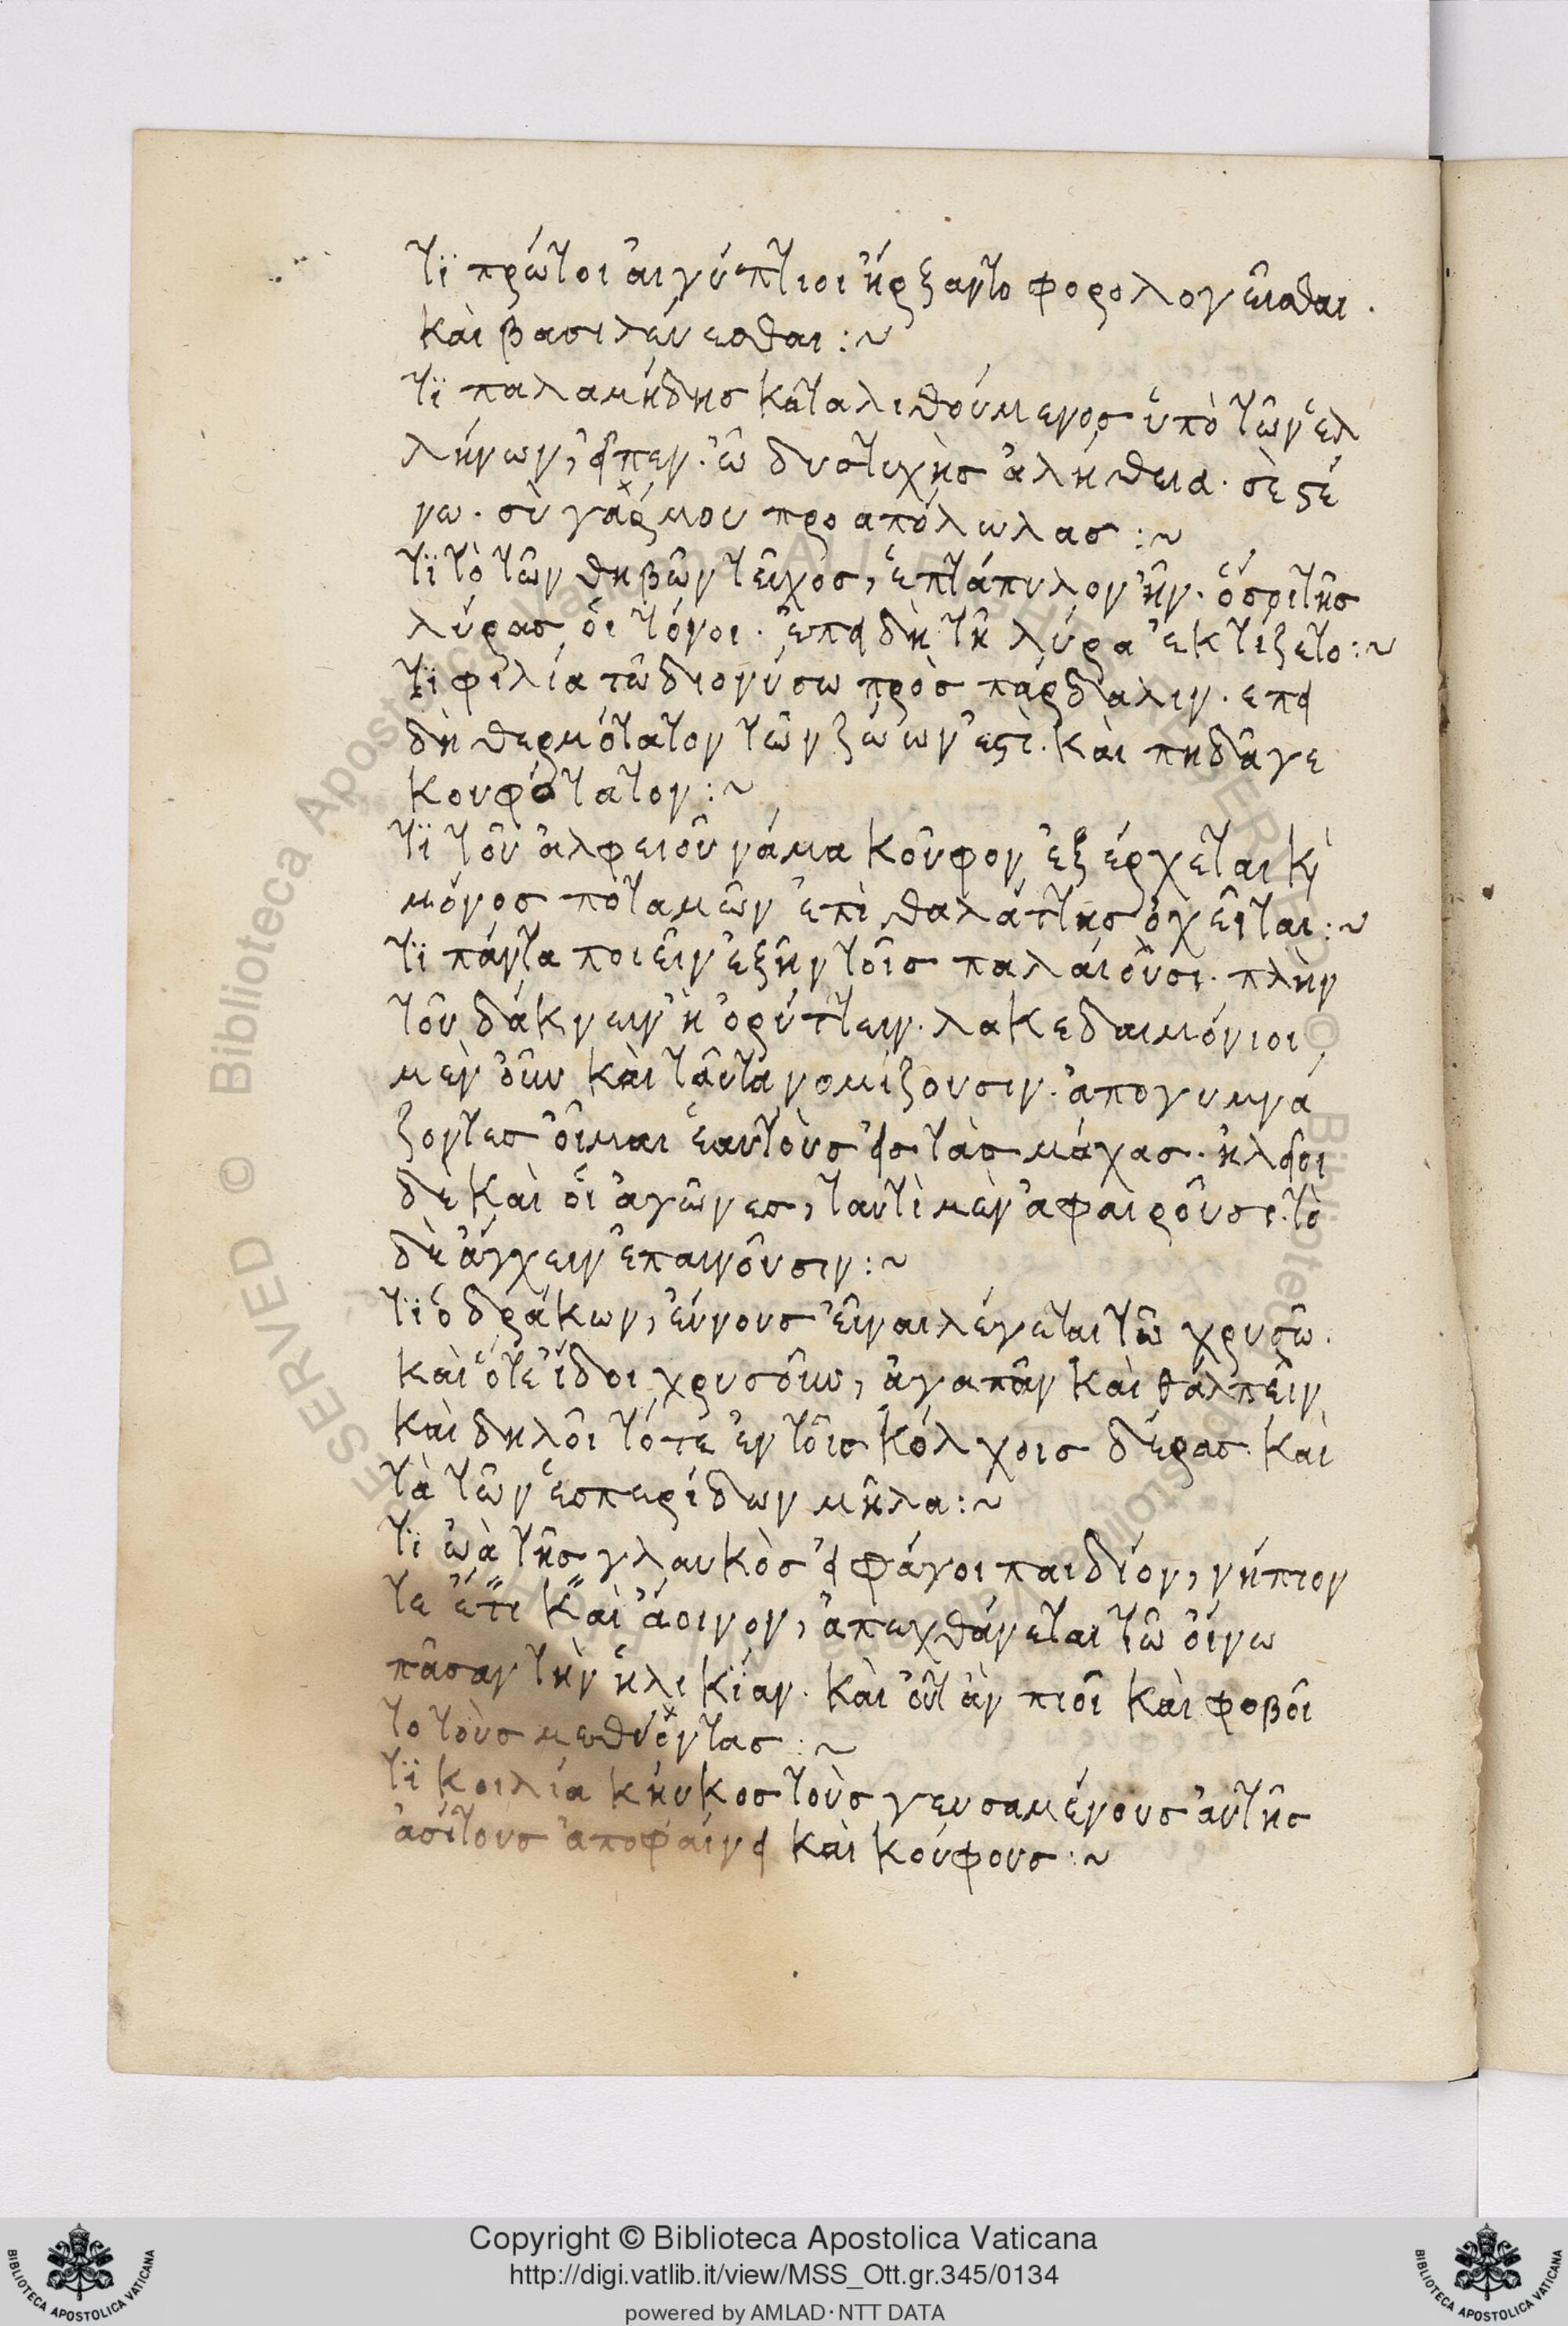 τϊ πρώτοι ἀιγύπτιοι ἤρξαντο φορολογεῖσθαι.
καὶ βασιλεύεσθαι:~
τϊ παλαμήδης καταλιθούμενος ὑπὸ τῶν ἑλ
λήνων, εἶπεν. ὦ δυστυχὴς ἀλήθεια. σὲ στέ
νω. σὺ γάρ μου προαπόλωλας:~
τϊ τὸ τῶν θηβῶν τεῖχος, ἑπτάπυλον ἦν. ὅσοι τῆς
λύρας οἱ τόνοι. ἐπειδὴ τῆ λύρα ἐκτίζετο:~
τϊ φιλία τῶ διονύσω πρὸς πάρδαλιν. επει
δὴ θερμότατον τῶν ζώων ἐστὶ. καὶ πηδᾶ γε
κουφότατον:~
τϊ τοῦ ἀλφειοῦ νάμα κοῦφον ἐξέρχεται κὶ
μόνος ποταμῶν ἐπὶ θαλάττης ὀχεῖται:~
τϊ πάντα ποιεῖν ἐξῆν τοῖς παλάιουσι. πλὴν
τοῦ δάκνειν ἢ ὀρύττειν. λακεδαιμόνιοι
μὲν οὖν καὶ ταῦτα νομίζουσιν. ἀπογυμνά
ζοντες οἶμαι ἑαυτοὺς εἰς τὰς μάχας. ἠλεῖοι
δὲ καὶ οἱ ἀγῶνες, ταυτὶ μὲν ἀφαιροῦσι. τὸ
δὲ ἄγχειν ἐπαινοῦσιν:~
τϊ ὁ δράκων, εὔνους εἶναι λέγεται τῶ χρυσῶ.
καὶ ὅτε ἴδοι χρυσοῦν, ἀγαπᾶν καὶ θάλπειν
καὶ δηλοῖ τότε ἐν τοῖς κόλχοις δέρας. καὶ
τὰ τῶν ἑσπερίδων μῆλα:~
τϊ ὠὰ τῆς γλαυκὸς εἰ φάγοι παιδίον, νήπιον
τε ἔτι καὶ ἄοινον, ἀπεχθάνεται τῶ οἴνω
πᾶσαν τὴν ἡλικϊαν. καὶ οὔτ ἂν πιοῖ καὶ φοβοῖ
το τοὺς μεθύοντας:~
τϊ κοιλία κήυκος τοὺς γευσαμένους αὐτῆς
ἀσίτους ἀποφαίνει καὶ κούφους:~
Copyright © Biblioteca Apostolica Vaticana
http://digi.vatlib.it/view/MSS_Ott.gr.345/0134
powered by AMLAD·NTT DATA
BIBLIOTECA APOSTOLICA VATICANA
BIBLIOTECA APOSTOLICA VATICANA